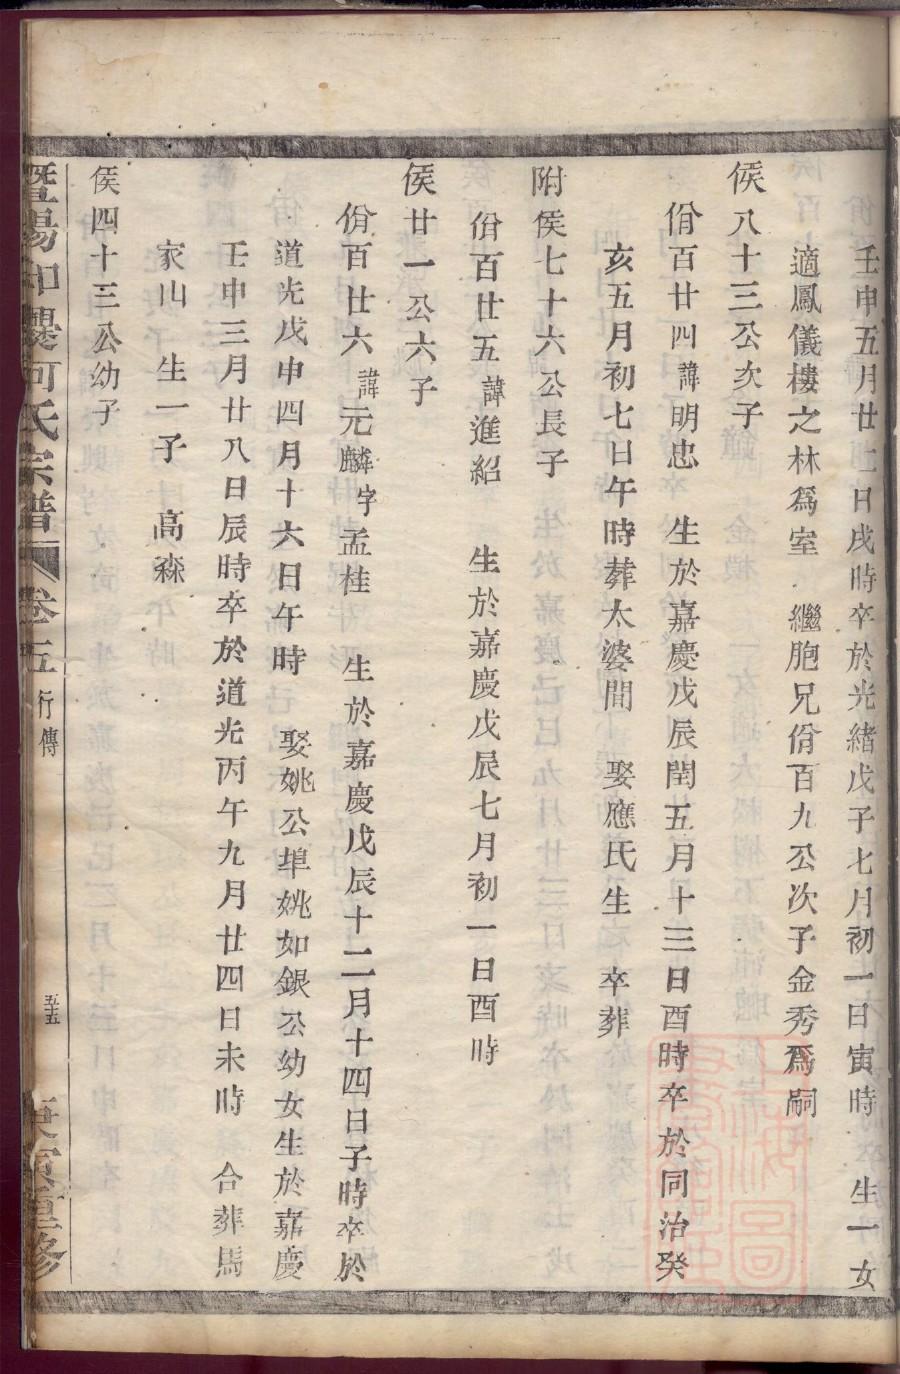 壬申五月廿七日戌時卒於光緒戊子七月初一日寅時　生一女
適鳳儀樓之林爲室　繼胞兄佾百九公次子金秀爲嗣
侯八十三公次子
佾百廿四諱明忠　生於嘉慶戊辰閏五月十三日酉時卒於同治癸
亥五月初七日午時葬太婆間　娶應氏生　卒葬
附侯七十六公長子
佾百廿五諱進紹　生於嘉慶戊辰七月初一日酉時
侯廿一公六子
佾百廿六諱元麟字孟桂　生於嘉慶戊辰十二月十四日子時卒於
道光戊申四月十六日午時　娶姚公埠姚如銀公幼女生於嘉慶
壬申三月廿八日辰時卒於道光丙午九月廿四日未時　合葬馬
家山　生一子　高森
侯四十三公幼子
暨陽　何氏宗譜　卷五　行傳　五十五　庚寅重修